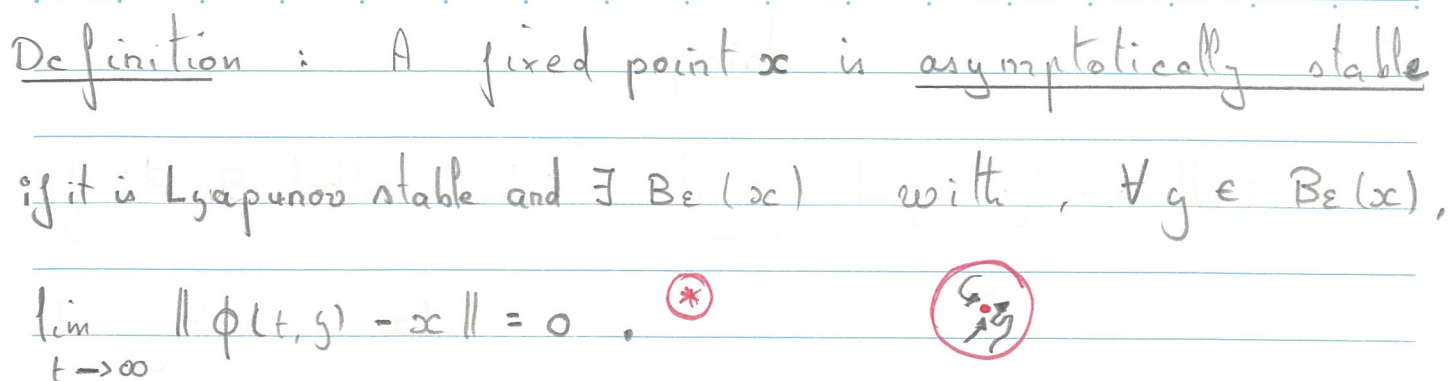 Definition : A fixed point x is asymptotically stable
if it is Lyapunov stable and ∃ Bε(x) with, ∀ y ∈ Bε(x),
lim ‖ϕ(t,y) - x‖ = 0 . *
t→∞